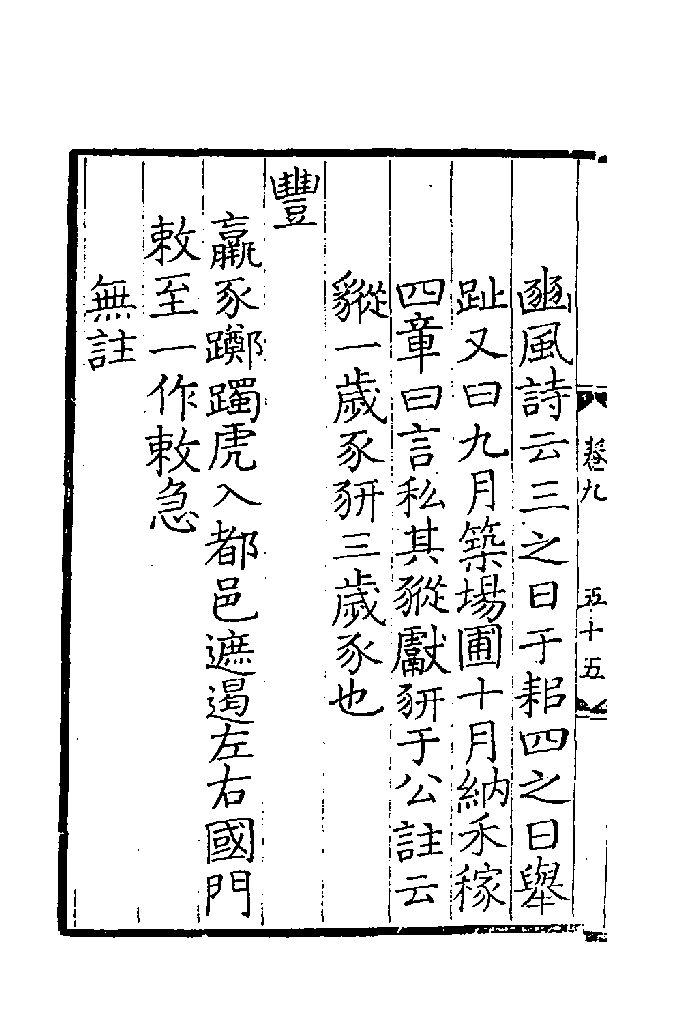 豳風詩云三之日于耜四之日舉
趾又曰九月築場圃十月納禾稼
四章曰言私其豵獻豜于公註云
豵一歲豕豜三歲豕也
豐
羸豕躑躅虎入都邑遮遏左右國門
敕至一作敕急
無註
卷九
五十五